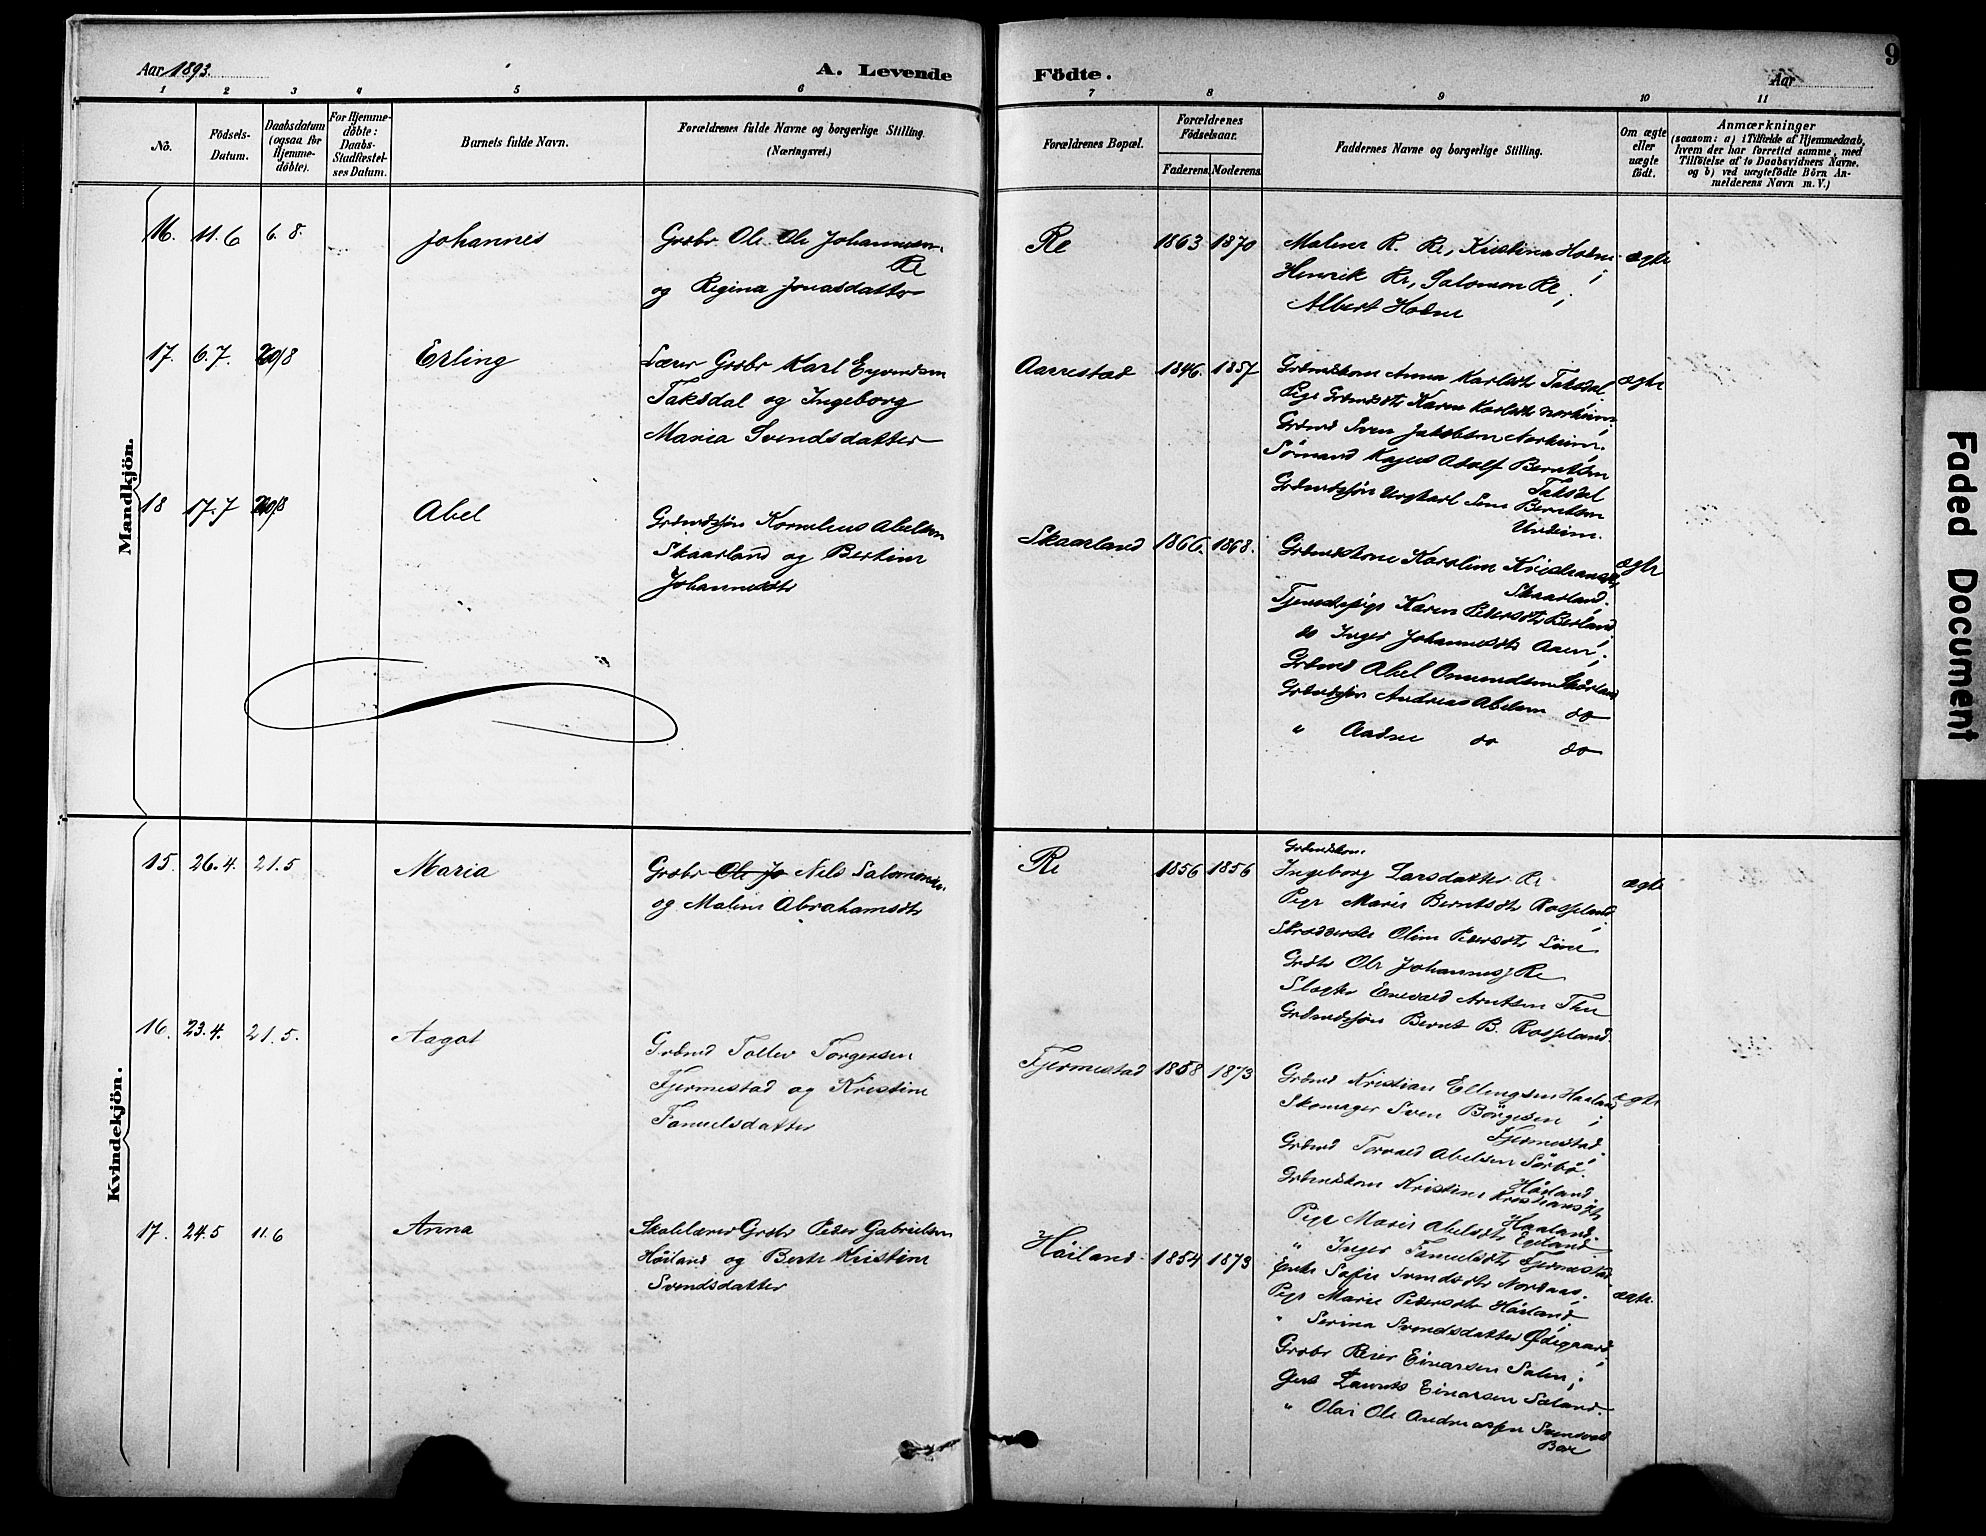 Aar 1893.
A. Levende Födte.
Aar
9
1 2 3 4 5 6 7 8 9 10 11
No.
Födsels-Datum.
Daabsdatum (ogsaa for Hjemmedöbte).
For Hjemmedöbte: Daabs-Stadfæstelses Datum.
Barnets fulde Navn.
Forældrenes fulde Navne og borgerlige Stilling. (Næringsvei.)
Forældrenes Bopæl.
Forældrenes Födselsaar.
Faderens. Moderens.
Faddernes Navne og borgerlige Stilling.
Om ægte eller uægte födt.
Anmærkninger
(saasom: a) i Tilfælde af Hjemmedaab, hvem der har forrettet samme, med Tilföielse af to Daabsvidners Navne, og b) ved uægtefödte Börn Anmelderens Navn m. V.)
Mandkjön.
16. 11.6 6.8. Johannes
Grbr Ole Ole Johannesen
Re
og Regina Jonasdatter
Re 1863 1870
Malene R. Re, Kristina Hodne
Henrik Re, Salomon Re;
Albert Hodne
ægte
17. 6.7. 20/8 Erling
Lærer Grbr Karl Eyvendsen
Taksdal og Ingeborg
Maria Svendsdatter
Aarrestad 1846. 1857
Grbmdskone Anna Karlsdt Taksdal
Pige Grbmdsdt Karen Karlsdt Norheim
Grbmd Sven Jakobsen Norheim.
Sömand Kajus Adolf Berntsen
Taksdal
Grbmdssön Ungkarl Berntsen
Undeim.
ægte
18 17.7 20/8 Abel
Grbmdssön Kornelius Abelsen
Skaarland og Bertine
Johannesdt
Skaarland 1866. 1868.
Grbmdskone Karoline Kristiansdt
Skaarland.
Tjenestepige Karen Pedersdt Berland
do Inger Johannesdt Aaen;
Grbmd Abel Omundsen Skårland
Grbmdssön Andreas Abelsen do
" Aadne do do
ægte
Kvindekjön.
15. 26.4. 21.5 Maria
Grbr Ole Jo Nels Salomonsen
og Malene Abrahamsdt
Re 1856 1856
Grbmdskone
Ingeborg Larsdatter Re
Pige Marie Berntsdt Rosseland
Skrædderske Oline Pedersdt Line
Ole Johannes Re
Slagter Enevald Arntsen Thu
Grbmdssön Bernt B. Rosseland
ægte
16. 23.4. 21.5. Aagot
Grbmd Tollev Torgersen
Fjermestad og Kristine
Tanuelsdatter
Fjermestad 1858 1873
Grbmd Kristian Ellingsen Haaland
Skomager Sven Börgesen;
Fjermestad.
Grbmd Torvald Abelsen Sörbö
Håland.
Grbmdskone Kristine Kristiansdt
Haaland.
Pige Marie Abelsdt Egeland
" Inger Tanuelsdt Fjermestad
ægte
17. 24.5 11.6 Anna
Skolelærer Grbr Peder Gabrielsen
Höiland og Berte Kristine
Svendsdatter
Höiland 1854 1873
Enke Sofie Svendsdt Nordaas.
Pige Marie Pedersdt Höiland
" Serina Svendsdatter Ödegaard
Grbr Reier Einarsen Salen;
Laurits Einarsen Saland.
" Olai Ole Andreassen
ægte.
Faded Document